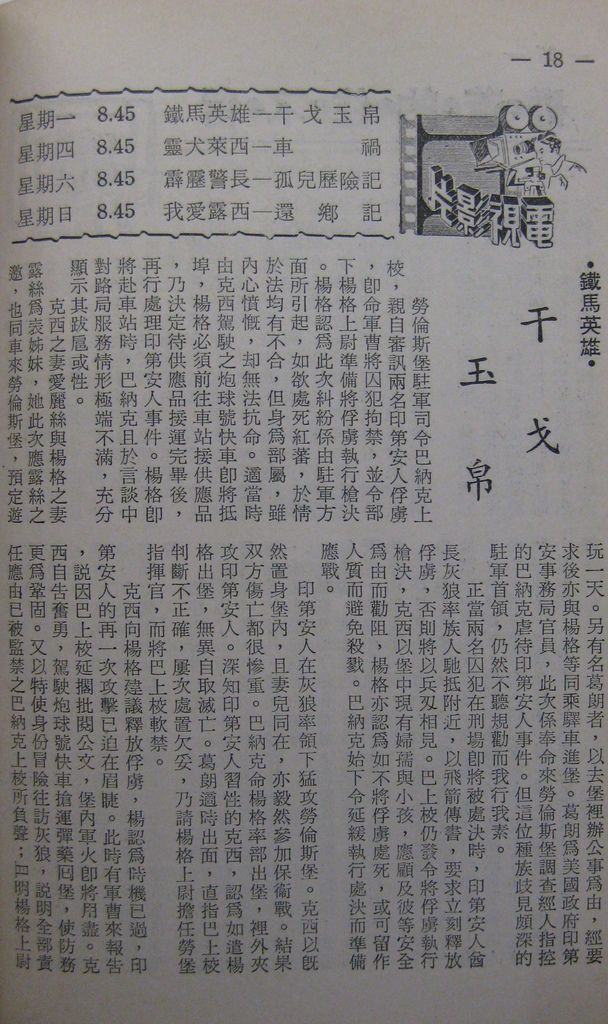 — 18 —
電視影集
星期一 8.45 鐵馬英雄—干戈玉帛
星期四 8.45 靈犬萊西—車禍
星期六 8.45 霹靂警長—孤兒歷險記
星期日 8.45 我愛露西—還鄉記
•鐵馬英雄•
干戈
玉帛
勞倫斯堡駐軍司令巴納克上
校，親自審訊兩名印第安人俘虜
，卽命軍曹將囚犯拘禁，並令部
下楊格上尉準備將俘虜執行槍決
。楊格認爲此次糾紛係由駐軍方
面所引起，如欲處死紅蕃，於情
於法均有不合，但身爲部屬，雖
內心憤慨，却無法抗命。適當時
由克西駕駛之炮球號快車卽將抵
埠，楊格必須前往車站接供應品
，乃決定待供應品接運完畢後，
再行處理印第安人事件。楊格卽
將赴車站時，巴納克且於言談中
對路局服務情形極端不滿，充分
顯示其跋扈或性。
克西之妻愛麗絲與楊格之妻
露絲爲表姊妹，她此次應露絲之
邀，也同車來勞倫斯堡，預定遊
玩一天。另有名葛朗者，以去堡裡辦公事爲由，經要
求後亦與楊格等同乘驛車進堡。葛朗爲美國政府印第
安事務局官員，此次係奉命來勞倫斯堡調查經人指控
的巴納克虐待印第安人事件。但這位種族歧見頗深的
駐軍首領，仍然不聽規勸而我行我素。
正當兩名囚犯在刑場卽將被處決時，印第安人酋
長灰狼率族人馳抵附近，以飛箭傳書，要求立刻釋放
俘虜，否則將以兵刃相見。巴上校仍發令將俘虜執行
槍決，克西以堡中現有婦孺與小孩，應顧及彼等安全
爲由而勸阻，楊格亦認爲如不將俘虜處死，或可留作
人質而避免殺戮。巴納克始下令延緩執行處決而準備
應戰。
印第安人在灰狼率領下猛攻勞倫斯堡。克西以旣
然置身堡內，且妻兒同在，亦毅然參加保衞戰。結果
雙方傷亡都很慘重。巴納克命楊格率部出堡，裡外夾
攻印第安人。深知印第安人習性的克西，認爲如遣楊
格出堡，無異自取滅亡。葛朗適時出面，直指巴上校
判斷不正確，屢次處置欠妥，乃請楊格上尉擔任勞堡
指揮官，而將巴上校軟禁。
克西向楊格建議釋放俘虜，楊認爲時機已過，印
第安人的再一次攻擊已迫在眉睫。此時有軍曹來報告
，説因巴上校延擱批閱公文，堡內軍火卽將用盡。克
西自告奮勇，駕駛炮球號快車搶運彈藥囘堡，使防務
更爲鞏固。又以特使身份冒險往訪灰狼，説明全部責
任應由已被監禁之巴納克上校所負聲；且明楊格上尉